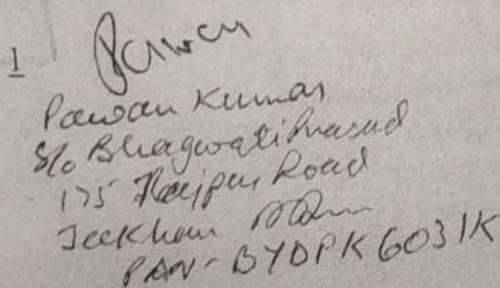 1
Pawan
Pawan Kumar
S/o Bhagwati Prasad
175 Raipur Road
PAN - BYDPK6031K